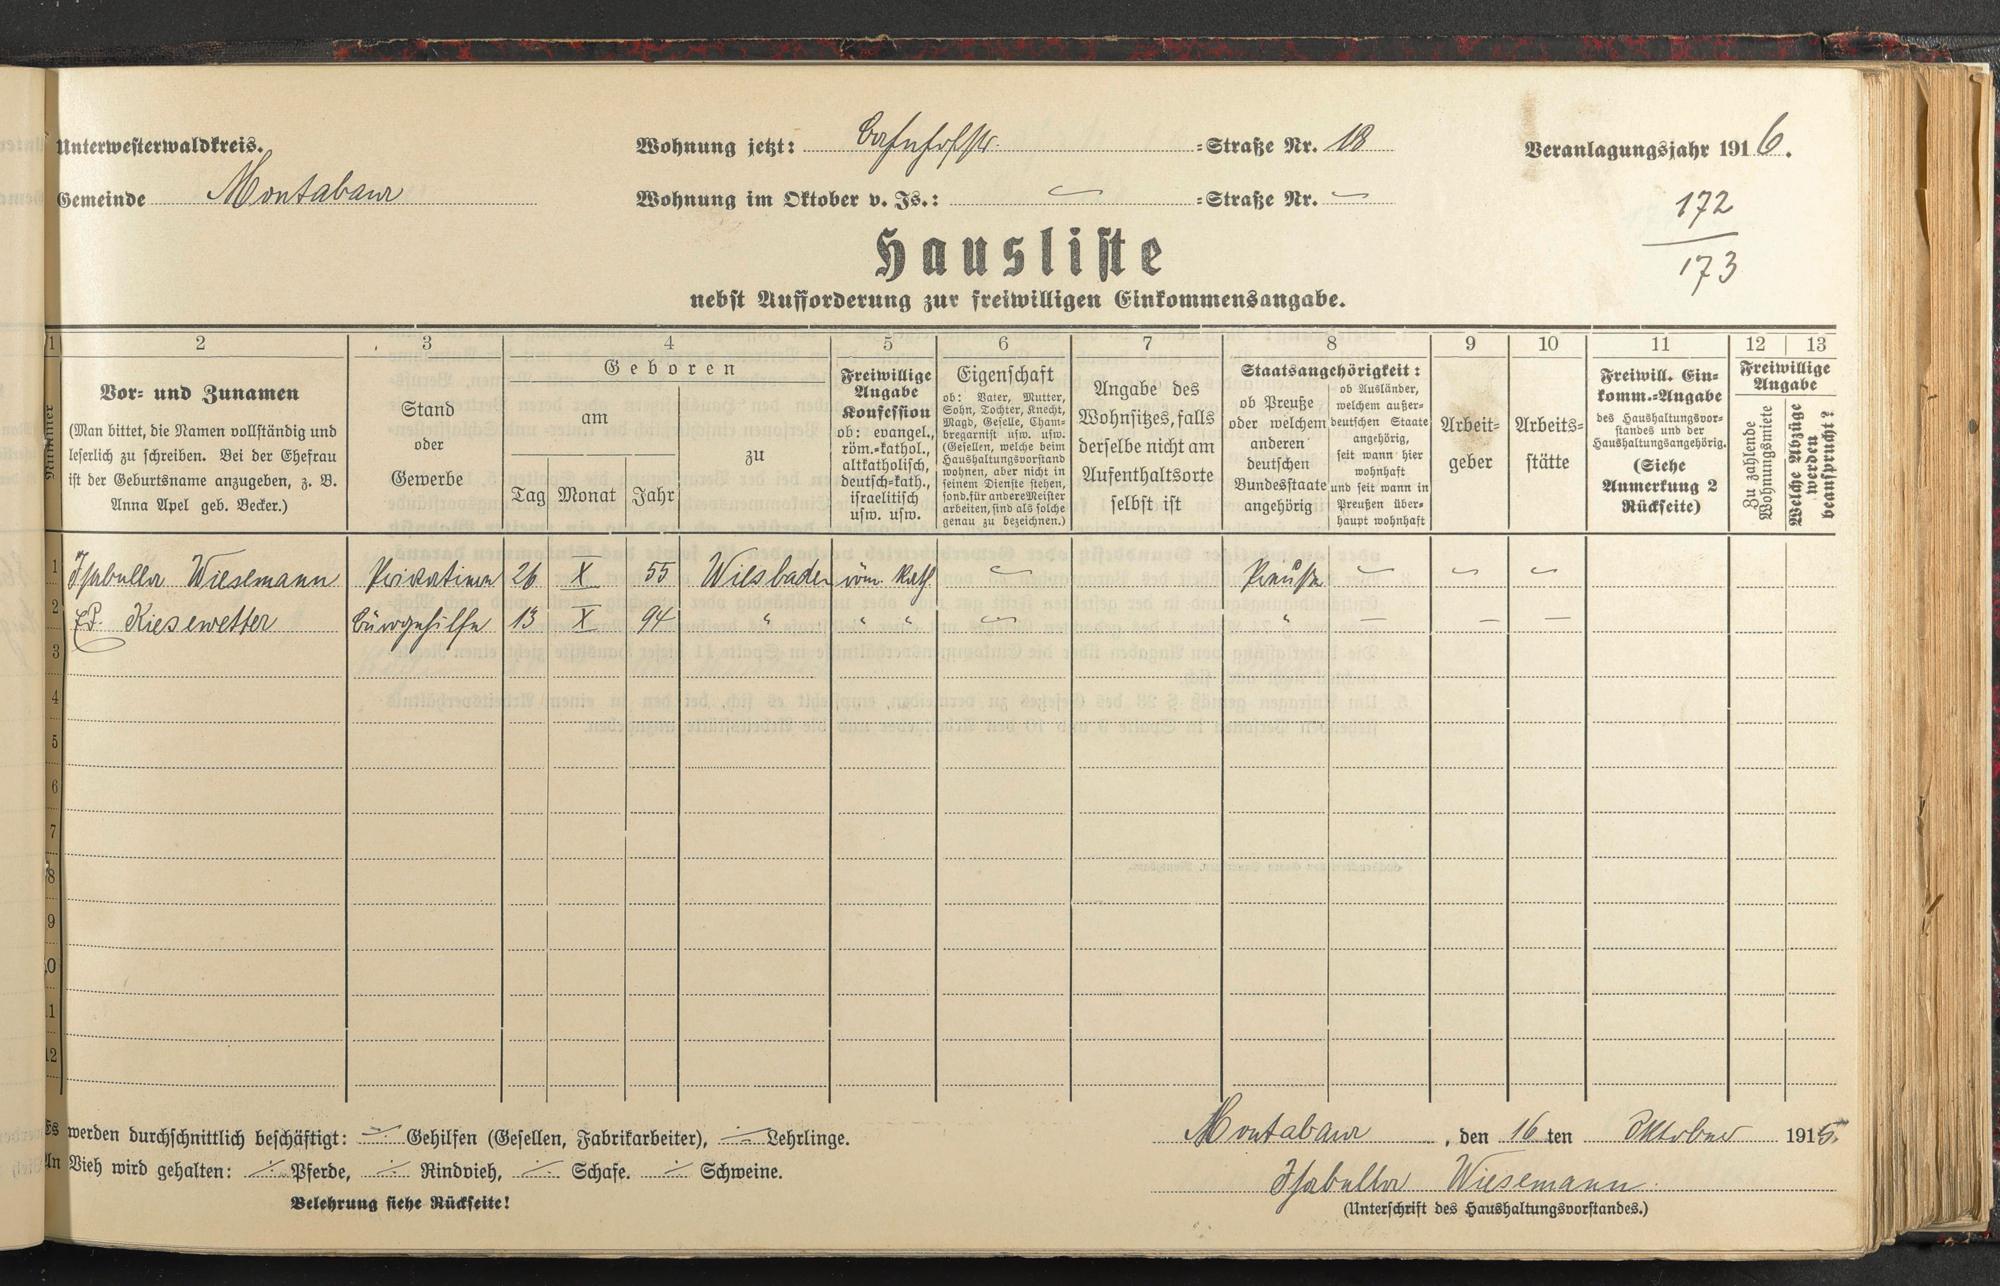 Unterwesterwaldkreis.
Wohnung jetzt: Bahnhofstr. =Straße Nr. 18
Veranlagungsjahr 1916.
Gemeinde Montabaur
Wohnung im Oktober v. Js.: — =Straße Nr. —
172
173
Hausliste
nebst Aufforderung zur freiwilligen Einkommensangabe.
1 2 3 4 5 6 7 8 9 10 11 12 13
Nummer
Vor- und Zunamen
(Man bittet, die Namen vollständig und
leserlich zu schreiben. Bei der Ehefrau
ist der Geburtsname anzugeben, z. B.
Anna Apel geb. Becker.)
Stand
oder
Gewerbe
Geboren
am
Tag Monat Jahr
zu
Freiwillige
Angabe
Konfession
ob: evangel.,
röm.-kathol.,
altkatholisch,
deutsch-kath.,
israelitisch
usw. usw.
Eigenschaft
ob: Vater, Mutter,
Sohn, Tochter, Knecht,
Magd, Geselle, Cham-
bregarnist usw. usw.
(Gesellen, welche beim
Haushaltungsvorstand
wohnen, aber nicht in
seinem Dienste stehen,
sond. für andere Meister
arbeiten, sind als solche
genau zu bezeichnen.)
Angabe des
Wohnsitzes, falls
derselbe nicht am
Aufenthaltsorte
selbst ist
Staatsangehörigkeit:
ob Preuße
oder welchem
anderen
deutschen
Bundesstaate
angehörig
ob Ausländer,
welchem außer-
deutschen Staate
angehörig,
seit wann hier
wohnhaft
und seit wann in
Preußen über-
haupt wohnhaft
Arbeit-
geber
Arbeits-
stätte
Freiwill. Ein-
komm.-Angabe
des Haushaltungsvor-
standes und der
Haushaltungsangehörig.
(Siehe
Anmerkung 2
Rückseite)
Freiwillige
Angabe
Zu zahlende
Wohnungsmiete
Welche Abzüge
werden
beansprucht?
1 Isabella Wiesemann Privatiere 26 X 55 Wiesbaden röm. kath. — Preuße — — —
2 Ed. Kiesewetter Bürogehilfe 13 X 94 " " " — " — — —
3
4
5
6
7
8
9
10
11
12
Es werden durchschnittlich beschäftigt: ·/· Gehilfen (Gesellen, Fabrikarbeiter), ·/· Lehrlinge.
An Vieh wird gehalten: ·/· Pferde, ·/· Rindvieh, ·/· Schafe. ·/· Schweine.
Belehrung siehe Rückseite!
Montabaur, den 16ten Oktober 1915.
Isabella Wiesemann.
(Unterschrift des Haushaltungsvorstandes.)